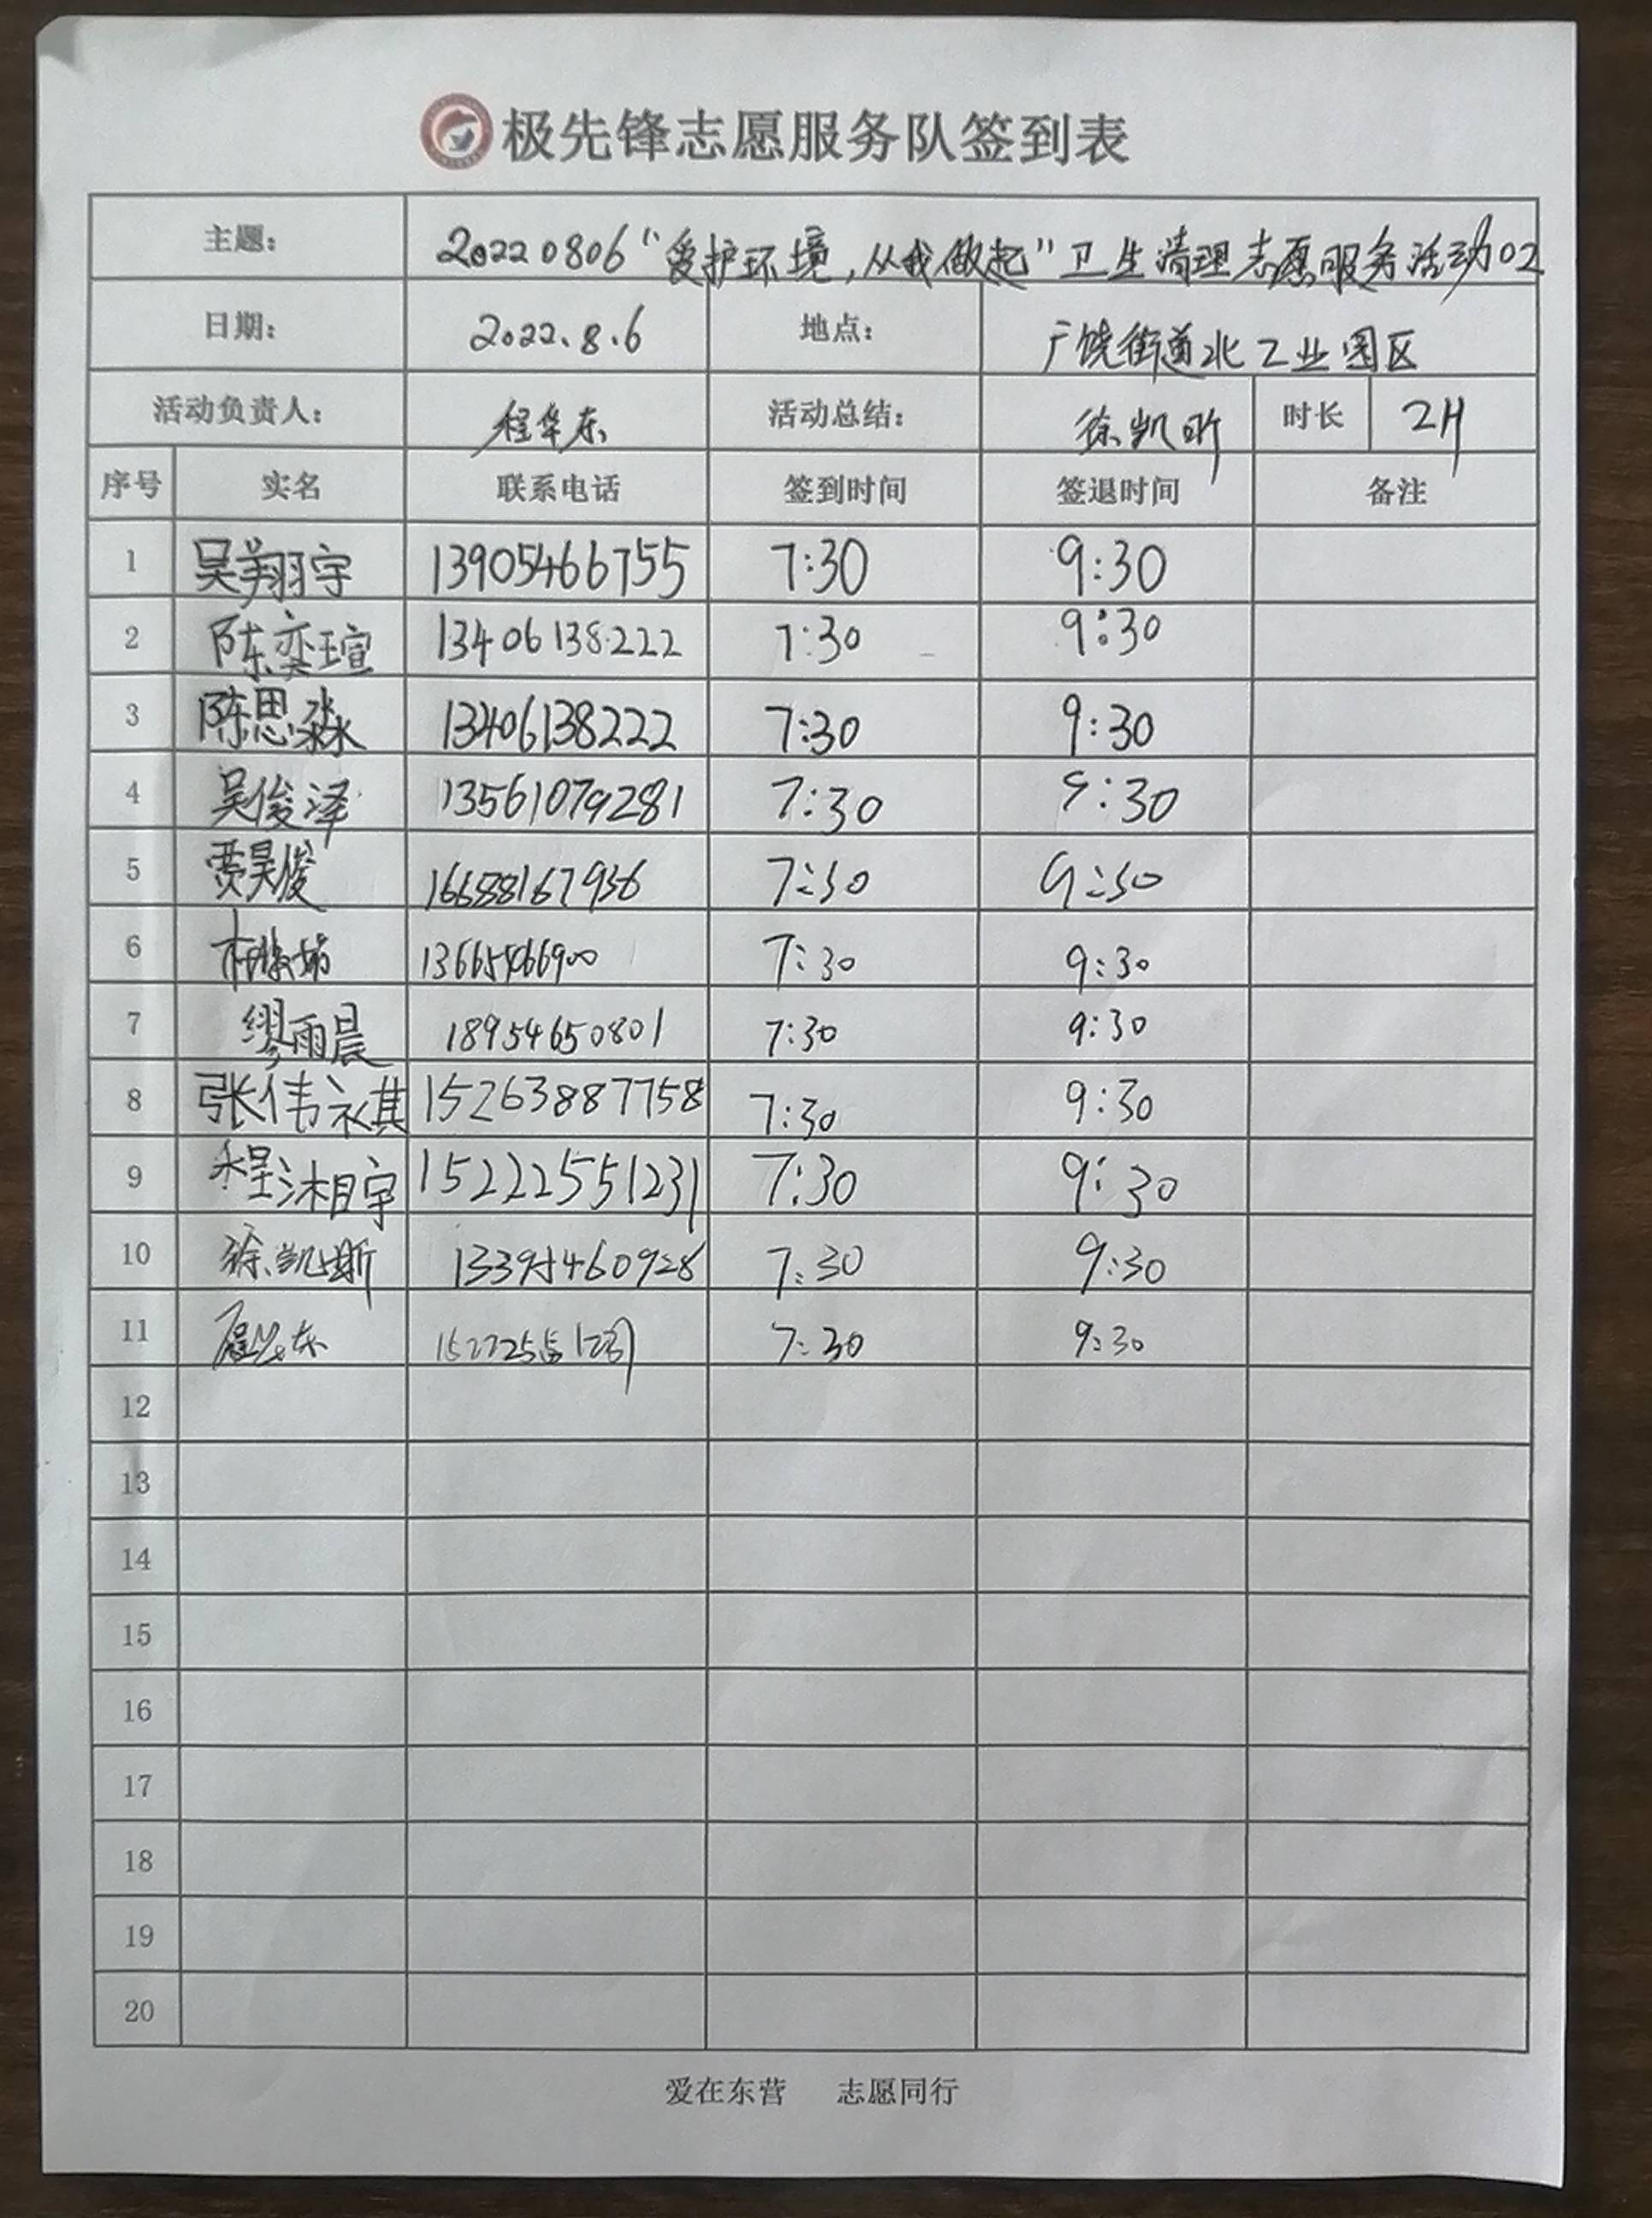 极先锋志愿服务队签到表
主题: 20220806“爱护环境,从我做起”卫生清理志愿服务活动02
日期: 2022.8.6 地点: 广饶街道北工业园区
活动负责人: 程华东 活动总结: 徐凯昕 时长 2H
序号 实名 联系电话 签到时间 签退时间 备注
1 吴翔宇 13905466755 7:30 9:30
2 陈奕瑄 13406138222 7:30 9:30
3 陈思淼 13406138222 7:30 9:30
4 吴俊泽 13561079281 7:30 9:30
5 贾昊俊 16688167936 7:30 9:30
6 13665466900 7:30 9:30
7 缪雨晨 18954650801 7:30 9:30
8 张伟祺 15263887758 7:30 9:30
9 程湘宇 15222551231 7:30 9:30
10 徐凯斯 13395460928 7:30 9:30
11 程华东 15222551231 7:30 9:30
12
13
14
15
16
17
18
19
20
爱在东营 志愿同行